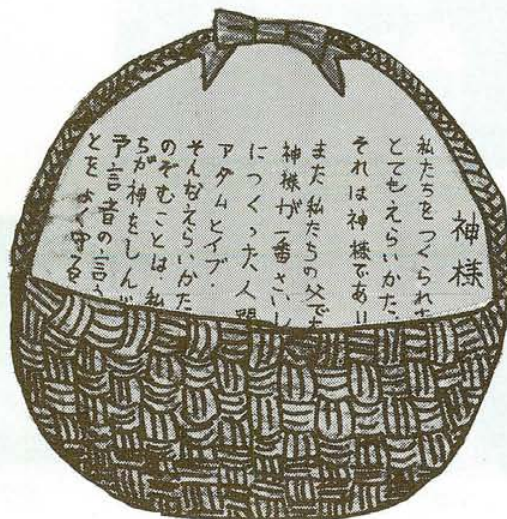 神様
私たちをつくられた
とてもえらいかた、
それは神様であり
また私たちの父でも
神様が一番さいし
につくった人間
アダムとイブ・
そんなえらいかた
のぞむことは、私
ちが神をしんじ
予言者の言う
とをよく守る